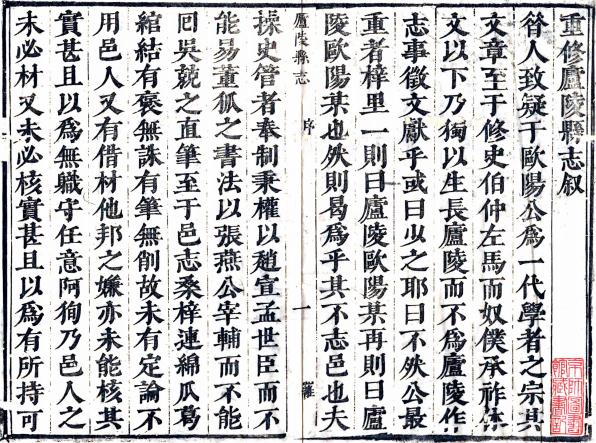 重修廬陵縣志叙
昝人致疑于歐陽公為一代學者之宗其
文章至于修史伯仲左馬而奴僕承祚休
文以下乃獨以生長廬陵而不為廬陵作
志事徵文獻乎或曰少之耶曰不然公最
重者梓里一則曰廬陵歐陽某再則曰廬
陵歐陽某也然則曷為乎其不志邑也夫
廬陵縣志
序
一
羅
操史管者奉制秉權以趙宣孟世臣而不
能易董狐之書法以張燕公宰輔而不能
回吳兢之直筆至于邑志桑梓連綿瓜葛
綰結有褒無誅有筆無削故未有定論不
用邑人又有借材他邦之嫌亦未能核其
實甚且以為無職守任意阿徇乃邑人之
未必材又未必核實甚且以為有所持可